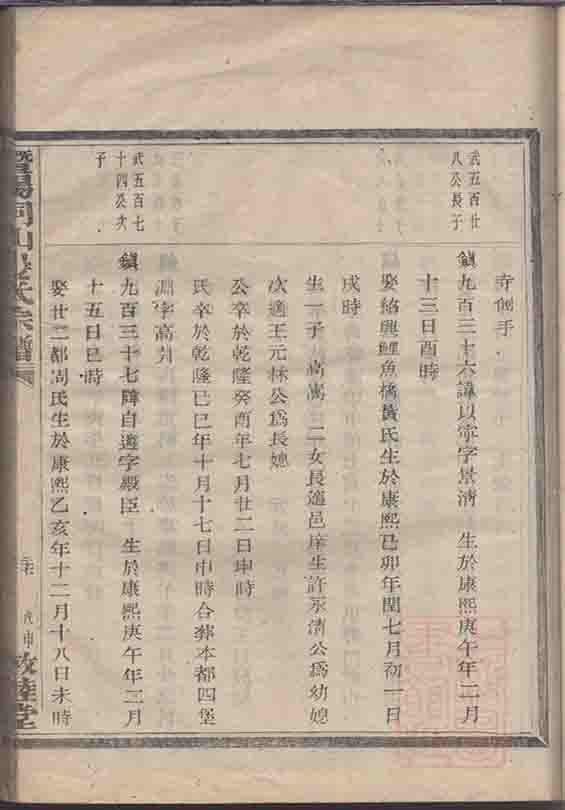 武五百廿
八公長子
寺側手
鎭九百三十六諱以寧字景清 生於康熙庚午年二月
十三日酉時
娶紹興鯉魚橋黃氏生於康熙己卯年閏七月初一日
戌時
生一子高嵩 二女長適邑庠生許永清公爲幼媳
次適王元林公爲長媳
公卒於乾隆癸酉年七月廿二日申時
氏卒於乾隆己巳年十月十七日申時合葬本都四堡
淵字高升
武五百七
十四公次
子
鎭九百三十七諱自遵字殿臣 生於康熙庚午年三月
十五日巳時
娶廿二都馮氏生於康熙乙亥年十二月十八日未時
氏宗譜
戊申
敦睦堂